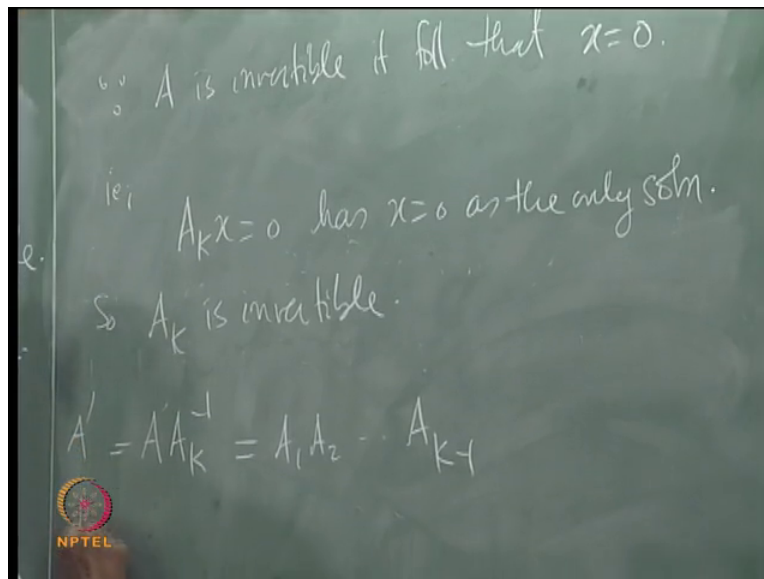 ∵ A is invertible it foll. that x=0.
ie, A_k x=0 has x=0 as the only soln.
e.
So A_k is invertible.
A' = A A_k^{-1} = A_1 A_2 .. A_{k-1}
NPTEL